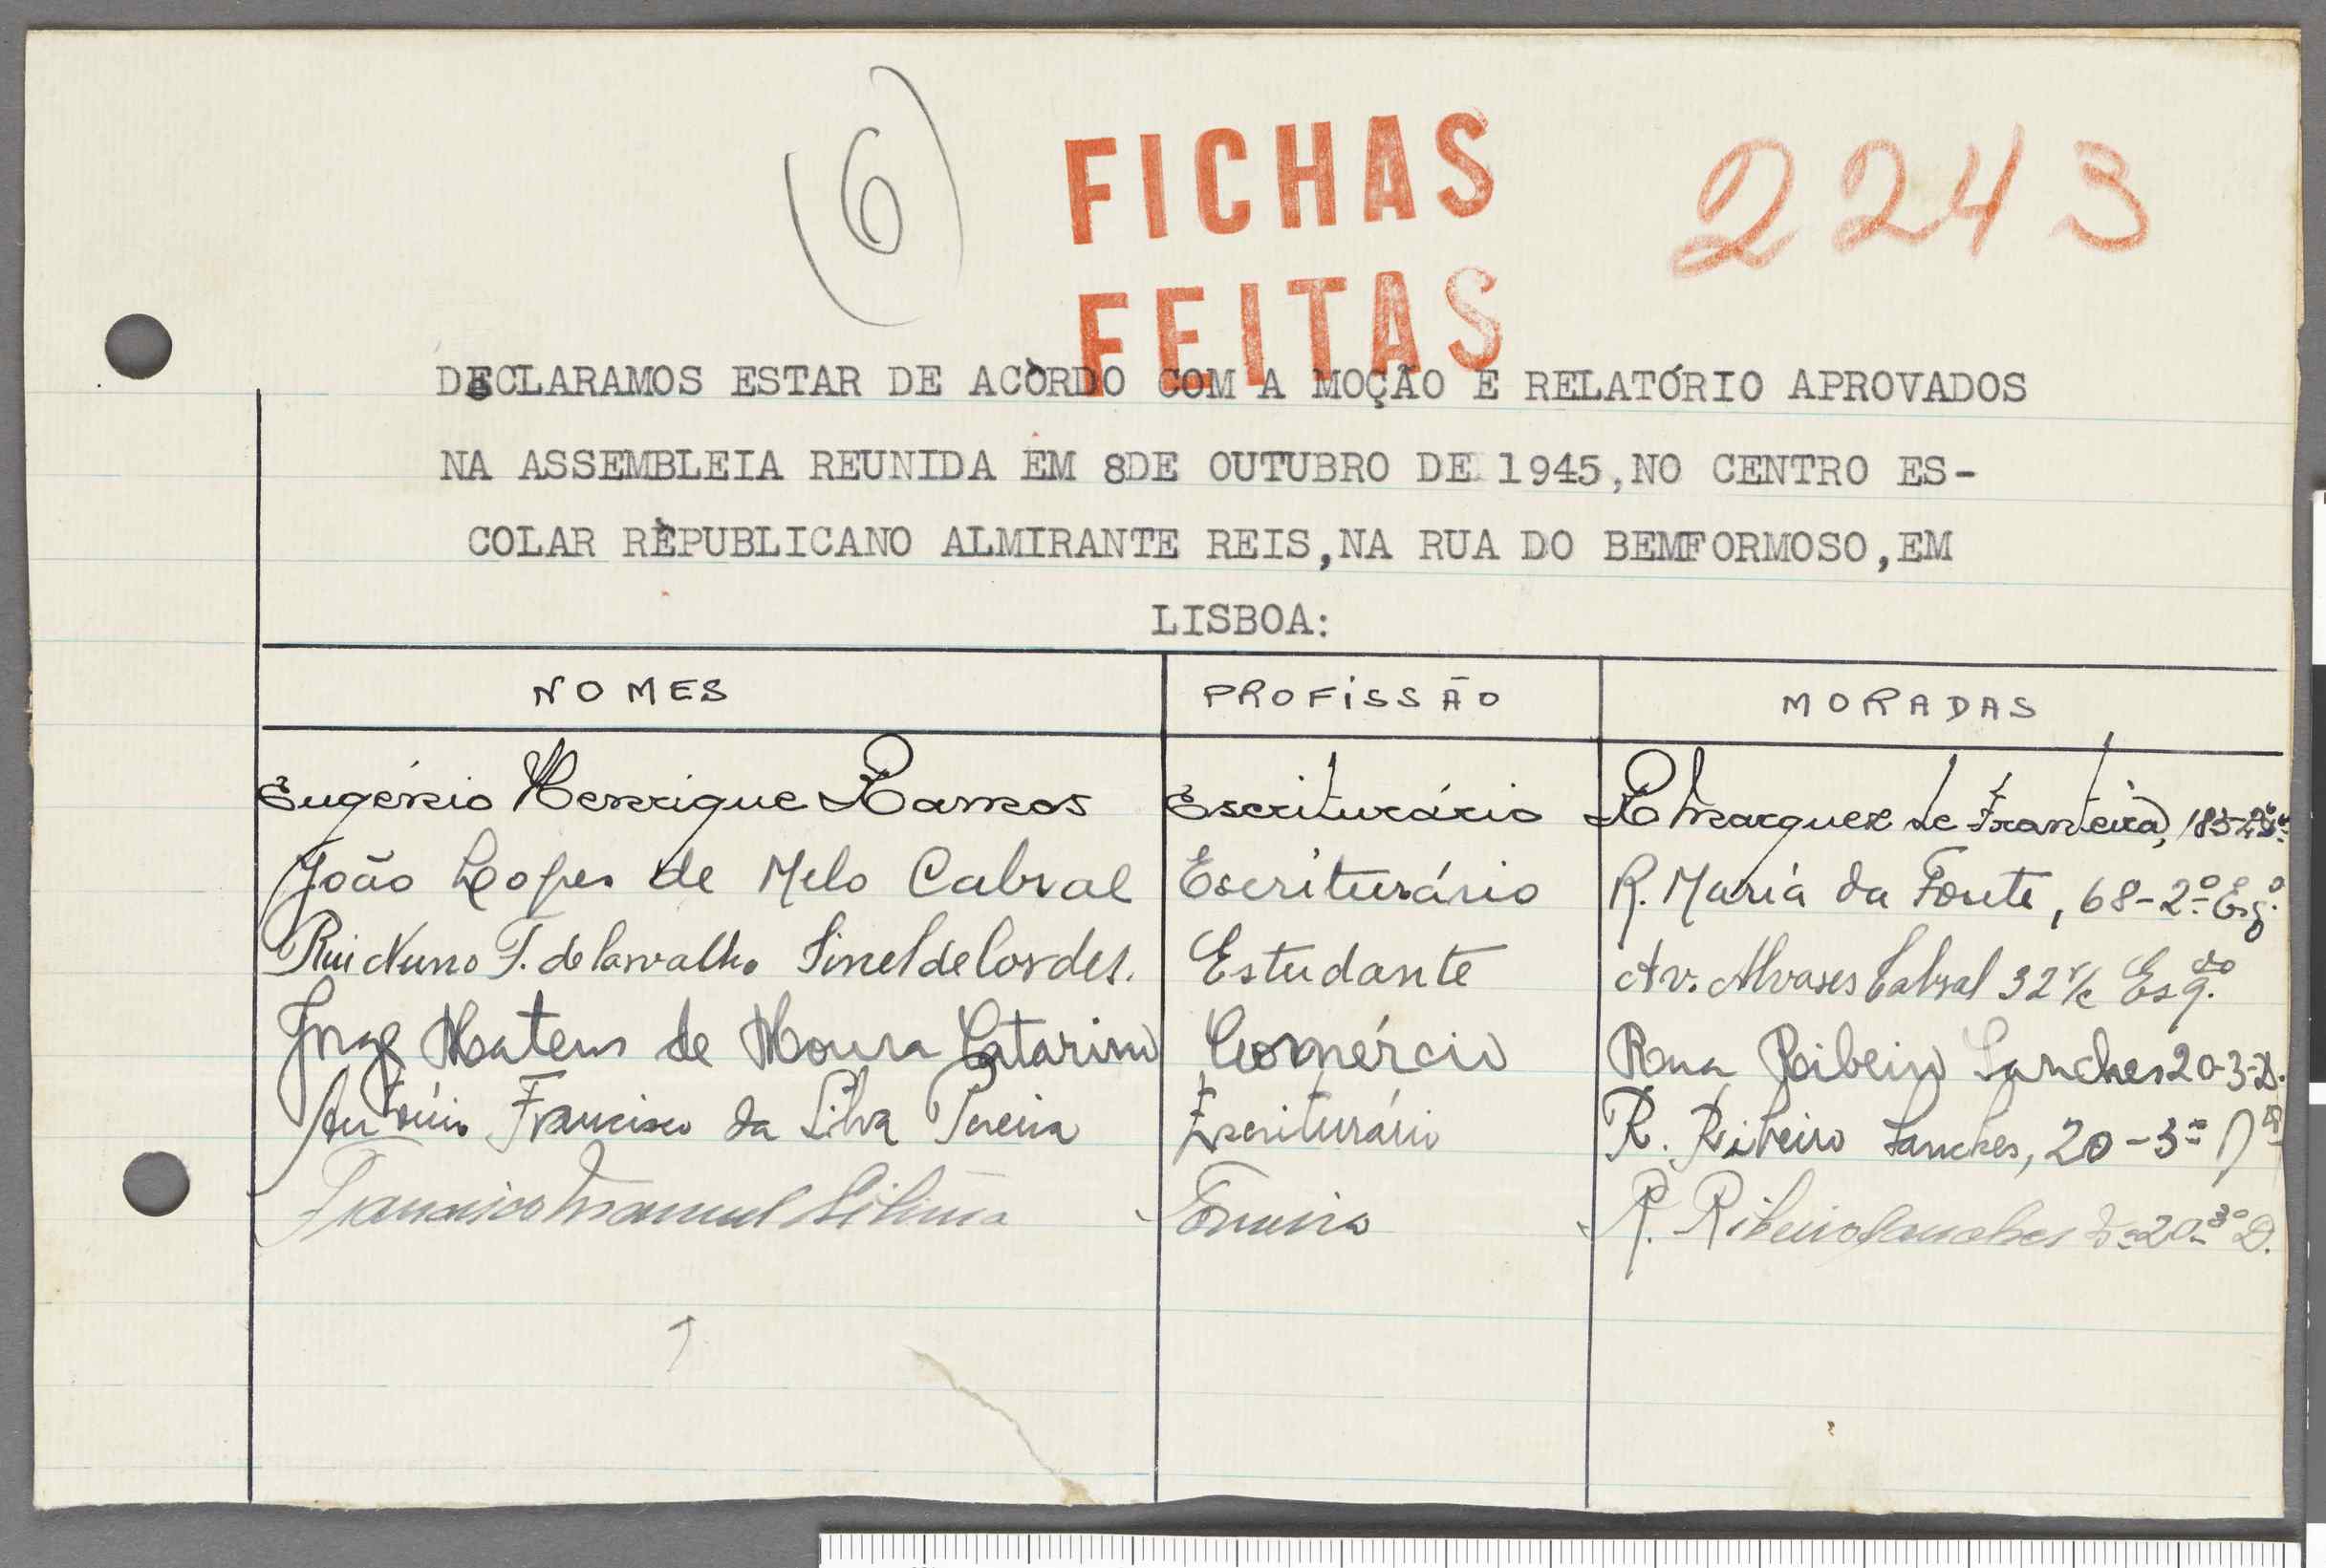 (6)
FICHAS
FEITAS
2243
DECLARAMOS ESTAR DE ACÒRDO COM A MOÇÃO E RELATÓRIO APROVADOS
NA ASSEMBLEIA REUNIDA EM 8DE OUTUBRO DE 1945, NO CENTRO ES-
COLAR REPUBLICANO ALMIRANTE REIS, NA RUA DO BEMFORMOSO, EM
LISBOA:
NOMES PROFISSÃO MORADAS
Eugénio Henrique Ramos Escriturário R Marquez de Fronteira,
João Lopes de Melo Cabral Escriturário R. Maria da Fonte, 68-2º Esqº
Rui Nuno F. de Carvalho Sinel de Cordes. Estudante Av. Alvares Cabral 32 r/c Esqdo.
Jorge Mateus de Moura Catarino Comércio Rua Ribeiro Sanches 20-3-D.
António Francisco da Silva Pereira Escriturário R. Ribeiro Sanches, 20-3º
Francisco Manuel R. Ribeiro Sanches 20 3º D.